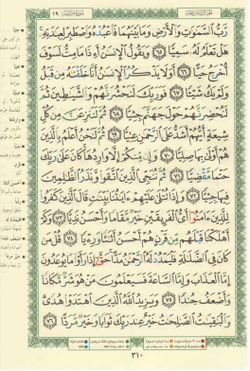 الجزء السادس عشر سورة مريم ١٩
رَّبُّ ٱلسَّمَٰوَٰتِ وَٱلْأَرْضِ وَمَا بَيْنَهُمَا فَٱعْبُدْهُ وَٱصْطَبِرْ لِعِبَٰدَتِهِۦ
هَلْ تَعْلَمُ لَهُۥ سَمِيًّا ٦٥ وَيَقُولُ ٱلْإِنسَٰنُ أَءِذَا مَا مِتُّ لَسَوْفَ
أُخْرَجُ حَيًّا ٦٦ أَوَلَا يَذْكُرُ ٱلْإِنسَٰنُ أَنَّا خَلَقْنَٰهُ مِن قَبْلُ
وَلَمْ يَكُ شَيْـًٔا ٦٧ فَوَرَبِّكَ لَنَحْشُرَنَّهُمْ وَٱلشَّيَٰطِينَ ثُمَّ
لَنُحْضِرَنَّهُمْ حَوْلَ جَهَنَّمَ جِثِيًّا ٦٨ ثُمَّ لَنَنزِعَنَّ مِن كُلِّ
شِيعَةٍ أَيُّهُمْ أَشَدُّ عَلَى ٱلرَّحْمَٰنِ عِتِيًّا ٦٩ ثُمَّ لَنَحْنُ أَعْلَمُ بِٱلَّذِينَ
هُمْ أَوْلَىٰ بِهَا صِلِيًّا ٧٠ وَإِن مِّنكُمْ إِلَّا وَارِدُهَا كَانَ عَلَىٰ رَبِّكَ
حَتْمًا مَّقْضِيًّا ٧١ ثُمَّ نُنَجِّى ٱلَّذِينَ ٱتَّقَوا۟ وَّنَذَرُ ٱلظَّٰلِمِينَ
فِيهَا جِثِيًّا ٧٢ وَإِذَا تُتْلَىٰ عَلَيْهِمْ ءَايَٰتُنَا بَيِّنَٰتٍ قَالَ ٱلَّذِينَ كَفَرُوا۟
لِلَّذِينَ ءَامَنُوٓا۟ أَىُّ ٱلْفَرِيقَيْنِ خَيْرٌ مَّقَامًا وَأَحْسَنُ نَدِيًّا ٧٣ وَكَمْ
أَهْلَكْنَا قَبْلَهُم مِّن قَرْنٍ هُمْ أَحْسَنُ أَثَٰثًا وَرِءْيًا ٧٤ قُلْ مَن
كَانَ فِى ٱلضَّلَٰلَةِ فَلْيَمْدُدْ لَهُ ٱلرَّحْمَٰنُ مَدًّا حَتَّىٰٓ إِذَا رَأَوْا۟ مَا يُوعَدُونَ
إِمَّا ٱلْعَذَابَ وَإِمَّا ٱلسَّاعَةَ فَسَيَعْلَمُونَ مَنْ هُوَ شَرٌّ مَّكَانًا
وَأَضْعَفُ جُندًا ٧٥ وَيَزِيدُ ٱللَّهُ ٱلَّذِينَ ٱهْتَدَوْا۟ هُدًى
وَٱلْبَٰقِيَٰتُ ٱلصَّٰلِحَٰتُ خَيْرٌ عِندَ رَبِّكَ ثَوَابًا وَخَيْرٌ مَّرَدًّا ٧٦
٣١٠